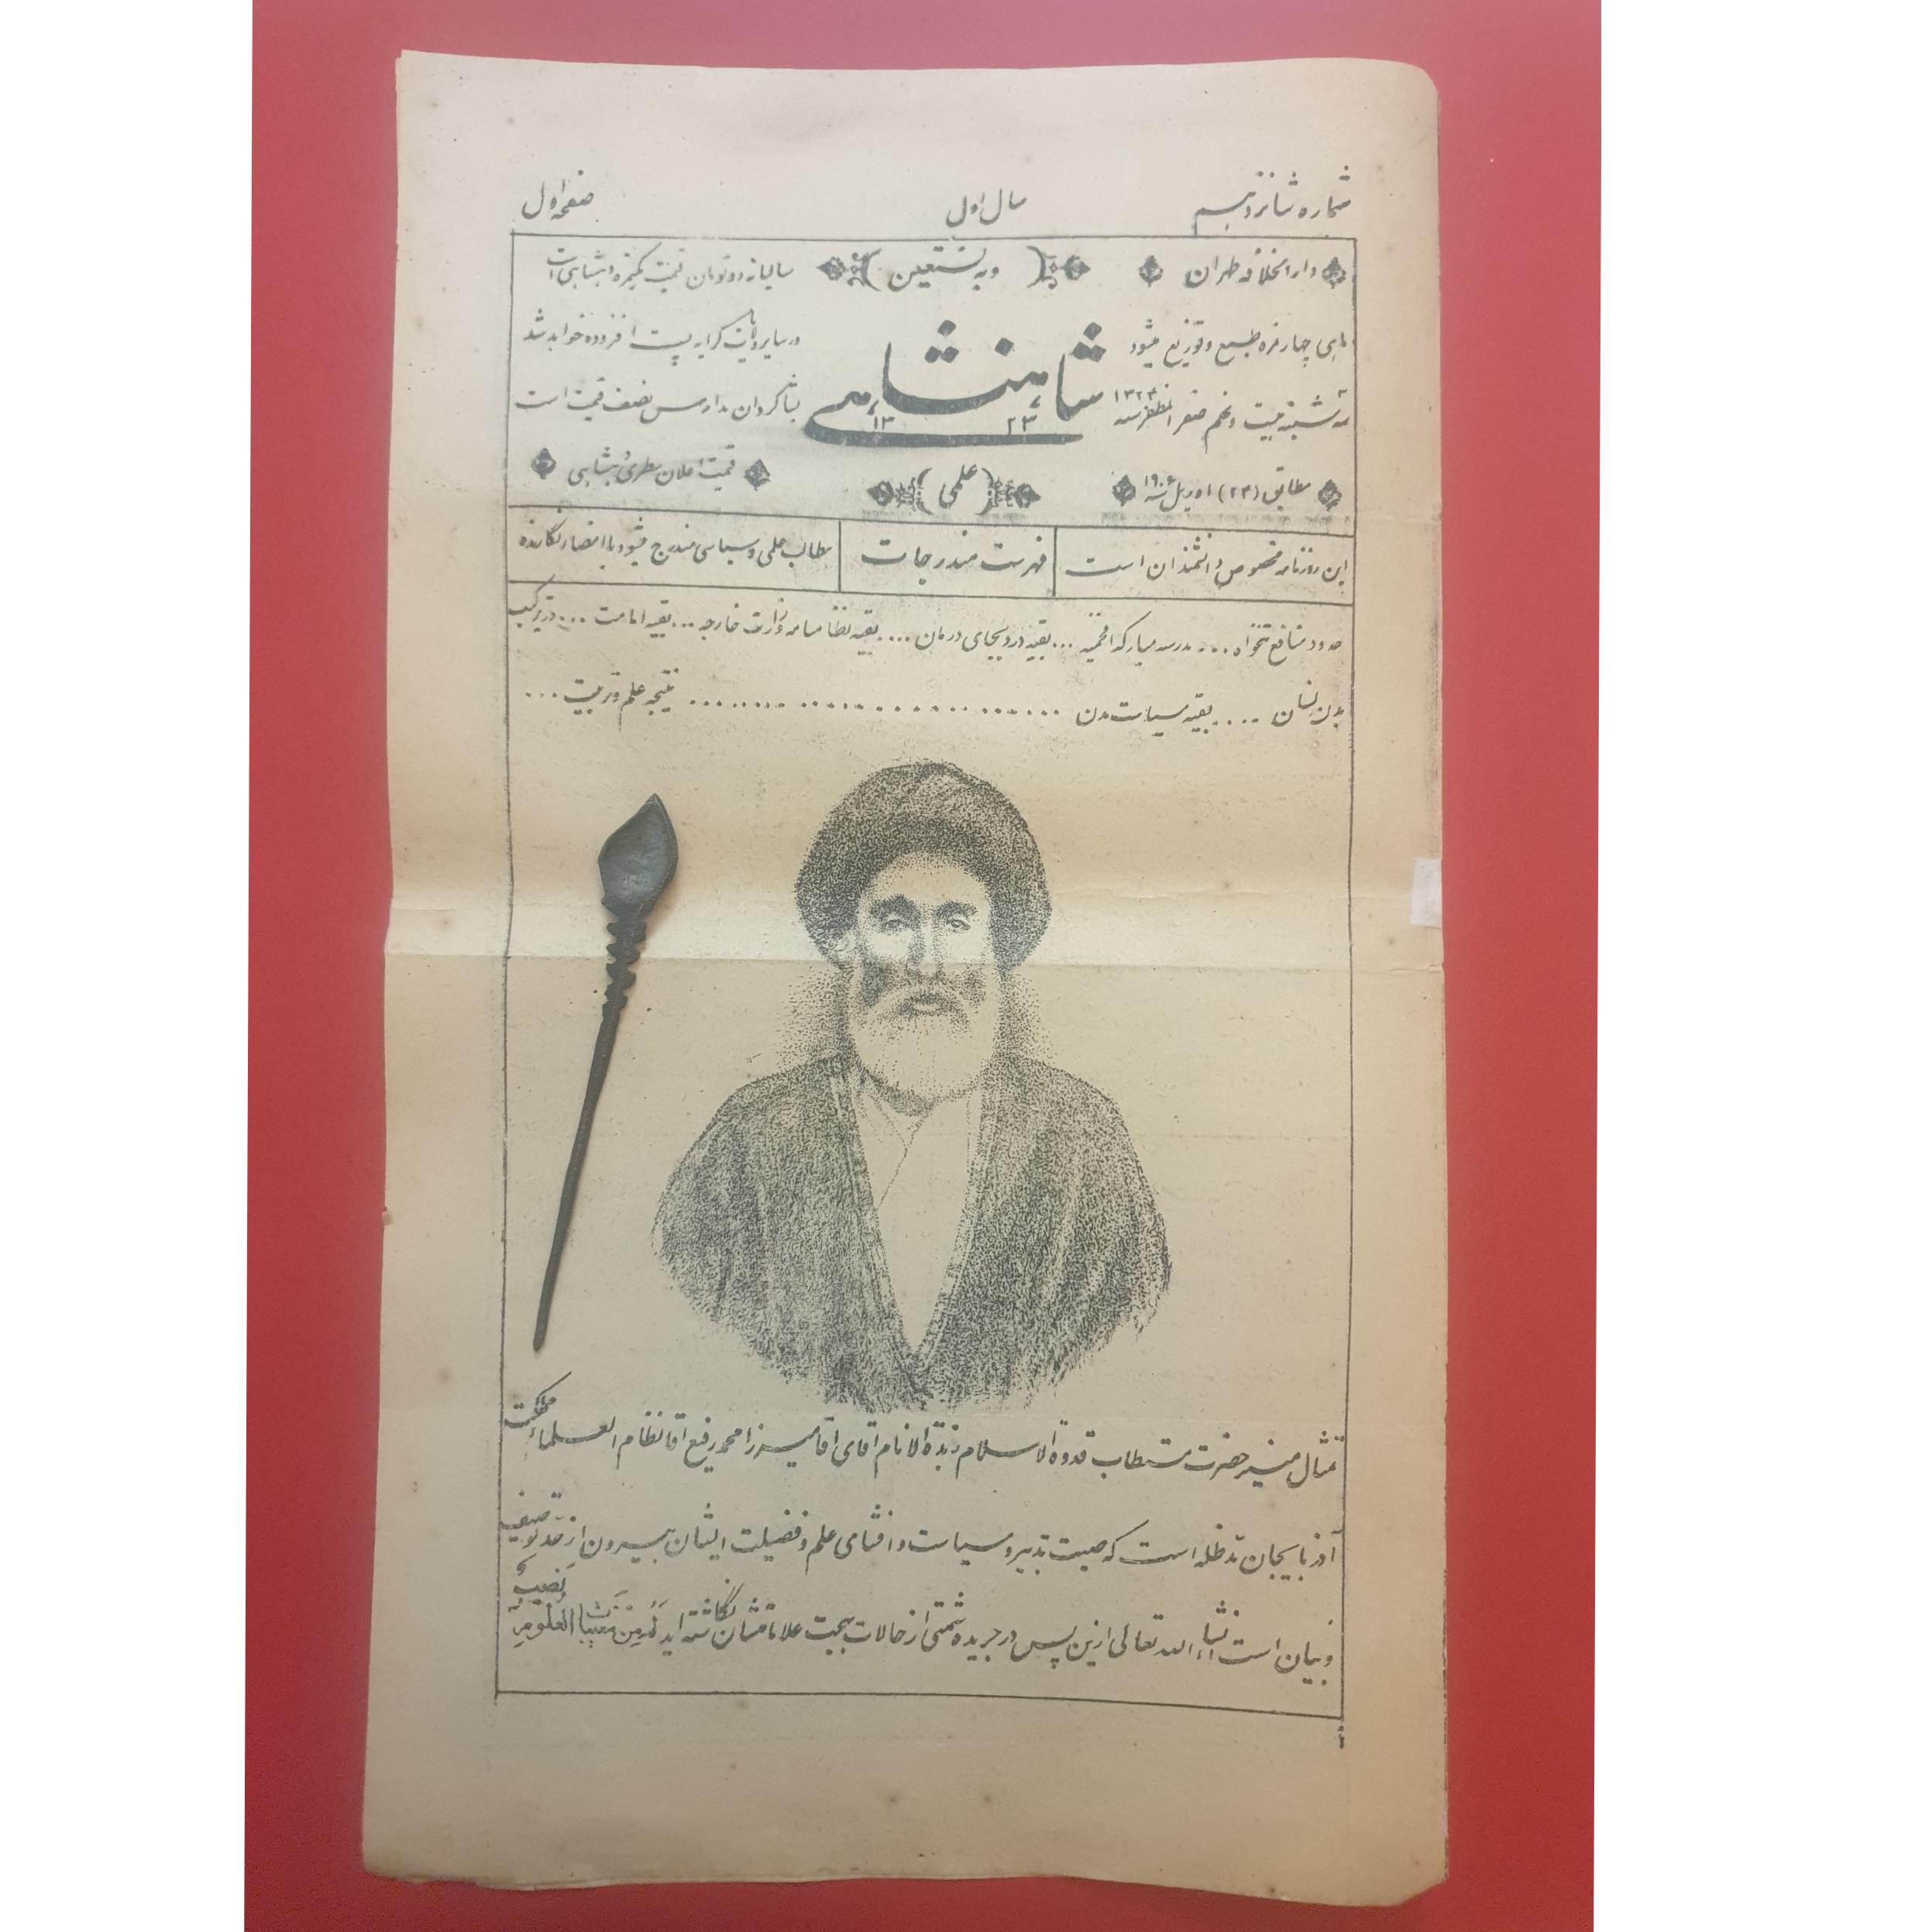 شماره شانزدهم
سال اول
صفحه اول
دارالخلافه طهران
وبه نستعین
سالیانه دو تومان قیمت یکنمره دهشاهی است
ماهی چهار نمره طبع و توزیع میشود
شاهنشاهی
۱۳۲۳
در سایر ولایات کرایه پست افزوده خواهد شد
سه شنبه بیست و نهم صفر المظفر سنه ۱۳۲۴
بشاگردان مدارس نصف قیمت است
مطابق (۲۴) اوریل سنه ۱۹۰۶
(علمی)
قیمت اعلان سطری دهشاهی
این روزنامه مخصوص دانشمندان است
فهرست مندرجات
مطالب علمی و سیاسی مندرج میشود با امضاء نگارنده
حدود منافع تنخواه .... مدرسه مبارکه افخمیه ... بقیه درد بیجای درمان .... بقیه نظامنامه وزارت خارجه ... بقیه امامت ... در ترکیب
بدن انسان .... بقیه سیاست مدن .... نتیجه علم و تربیت ...
تمثال منیر حضرت مستطاب قدوة الاسلام زبدة الانام اقای اقا میرزا محمد رفیع اقا نظام العلماء مملکت
آذربایجان مد ظله است که صیت تدبیر و سیاست و افشای علم و فضیلت ایشان بیرون از حد توصیف
و بیان است انشاء الله تعالی ازین پس در جریده شمتی از حالات بهجت علاماتشان نگاشته اید لَهُ مِن العُلُومِ نَصیبٌ